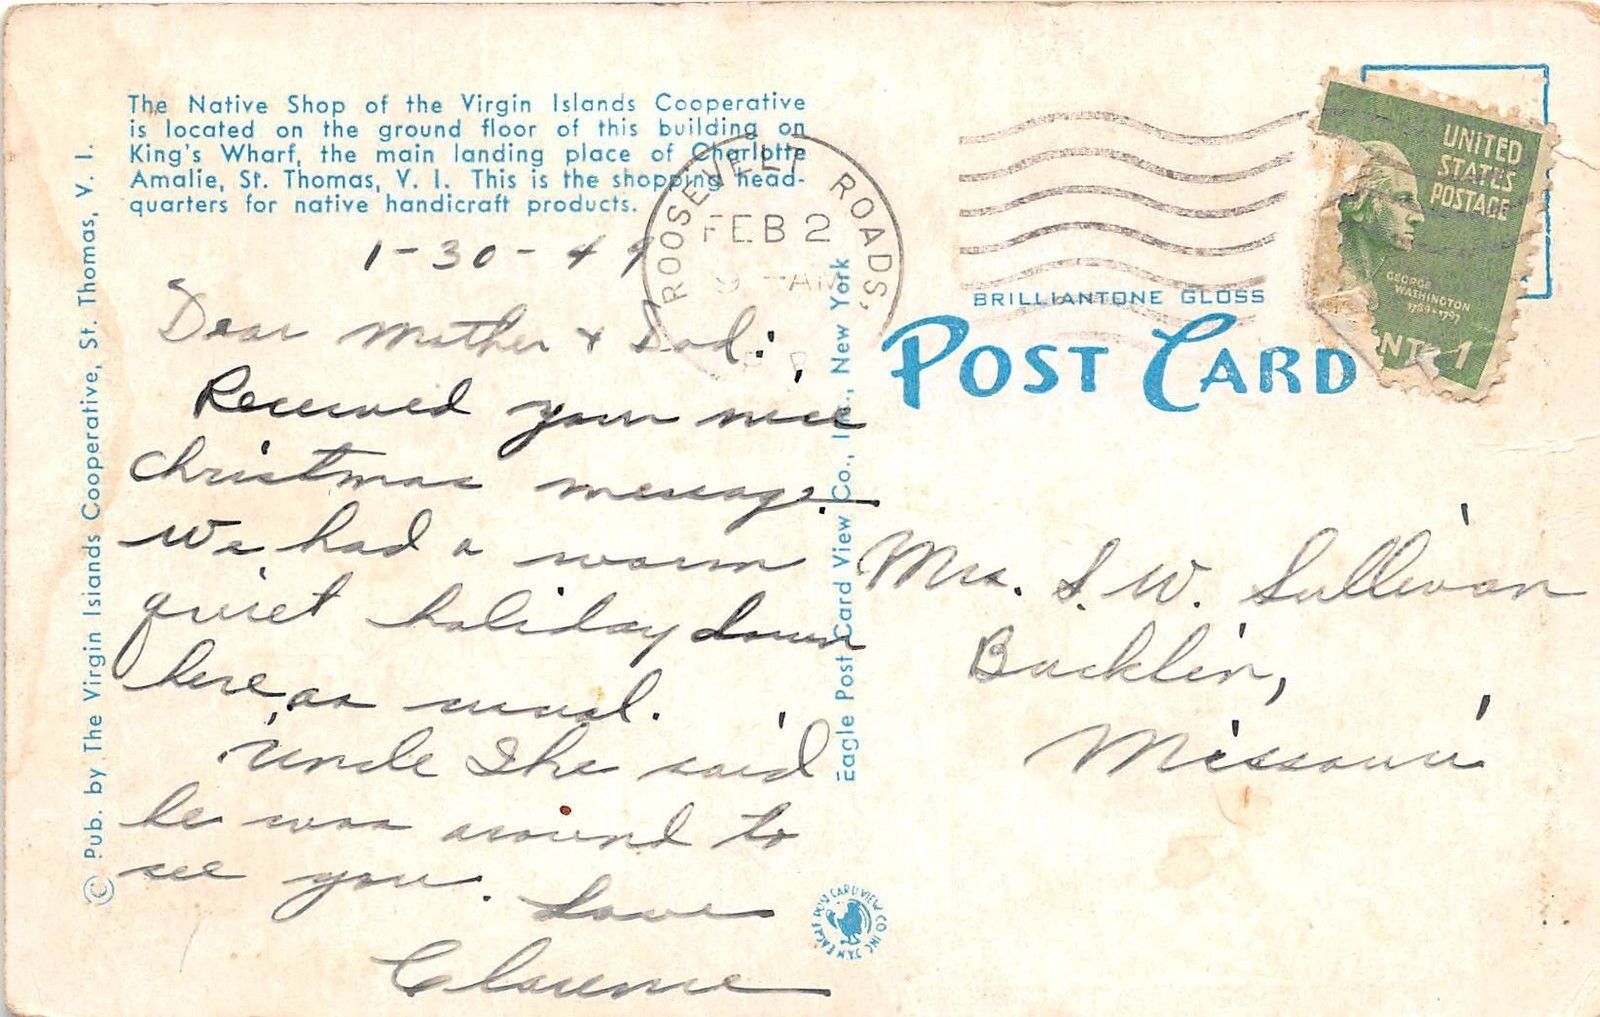 The Native Shop of the Virgin Islands Cooperative
is located on the ground floor of this building on
King's Wharf, the main landing place of Charlotte
Amalie, St. Thomas, V. I. This is the shopping head-
quarters for native handicraft products.
1-30-49
Dear Mother & Dad:
Received your nice
Christmas message.
We had a warm
quiet holiday down
here as usual.
Uncle Ike said
he was around to
see you. Love
Clarence
© Pub. by The Virgin Islands Cooperative, St. Thomas, V. I.
Eagle Post Card View Co., Inc., New York
ROOSEVELT ROADS,
FEB 2
9 AM
BRILLIANTONE GLOSS
POST CARD
UNITED
STATES
POSTAGE
GEORGE
WASHINGTON
1789-1797
NT 1
Mrs. S. W. Sullivan
Bucklin,
Missouri
EAGLE POST CARD VIEW CO INC N.Y.